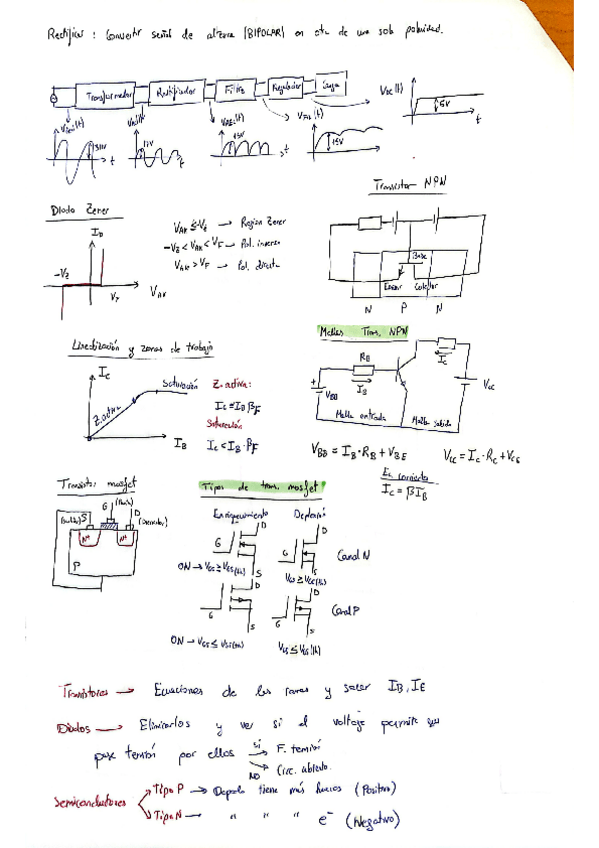 Rectificar : Convertir señal de alterna (BIPOLAR) en otra de una sola polaridad.
Transformador
Rectificador
Filtro
Regulador
Carga
V_DC(t)
5V
t
311V
t
17V
t
15V
t
15V
t
Transistor NPN
Diodo Zener
I_D
-V_Z
V_F
V_AK
V_AK ≤ -V_Z → Region Zener
-V_Z < V_AK < V_F → Pol. inversa
V_AK > V_F → Pol. directa
Base
Emisor
Colector
N P N
Linealización y zonas de trabajo
I_C
Saturación
Z. activa
I_B
Z. activa:
I_C = I_B β_F
Saturación
I_C < I_B · β_F
Mallas Trans. NPN
R_B
I_B
I_C
V_BB
V_CC
Malla entrada
Malla salida
V_BB = I_B · R_B + V_BE
V_CC = I_C · R_C + V_CE
En corriente
I_C = β I_B
Transistor mosfet
S
G
D
N+
N+
P
Tipos de trans. mosfet
Enriquecimiento
Deplexión
G
D
S
G
D
S
Canal N
ON → V_GS ≥ V_GS(th)
V_GS ≥ V_GS(th)
G
D
S
G
S
Canal P
ON → V_GS ≤ V_GS(th)
V_GS ≤ V_GS(th)
Transistores → Ecuaciones de las ramas y sacar I_B, I_E
Diodos → Eliminarlos y ver si el voltaje permite que
pase tensión por ellos
SÍ → F. tensión
NO → Circ. abierto.
Semiconductores
Tipo P → Dopado tiene más huecos (Positivo)
Tipo N → " " " e⁻ (Negativo)